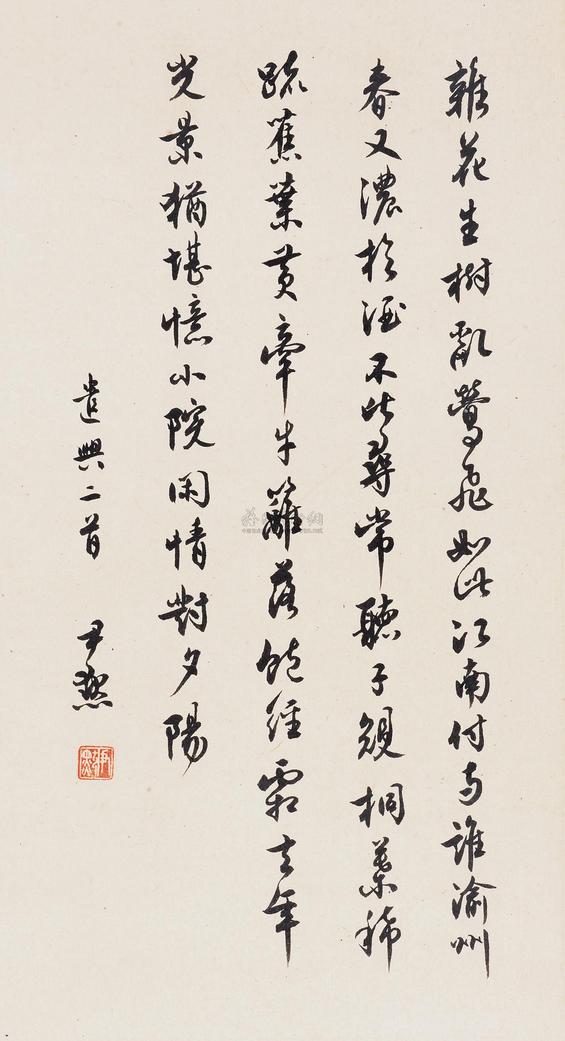 雜花生樹亂鶯飛如此江南付與誰渝州
春又濃於酒不比尋常聽子規桐葉稀
疏蕉葉黃牽牛籬落飽經霜去年
光景猶堪憶小院閑情對夕陽
遣興二首 尹默